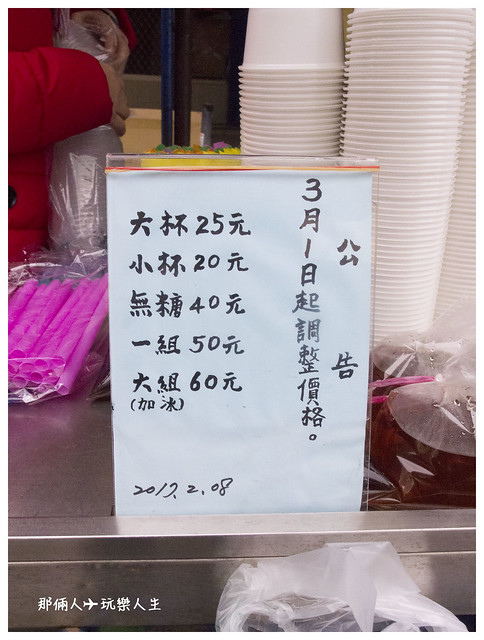 公告
3月1日起調整價格。
大杯25元
小杯20元
無糖40元
一組50元
大組60元
(加冰)
2017.2.08
那倆人✈玩樂人生